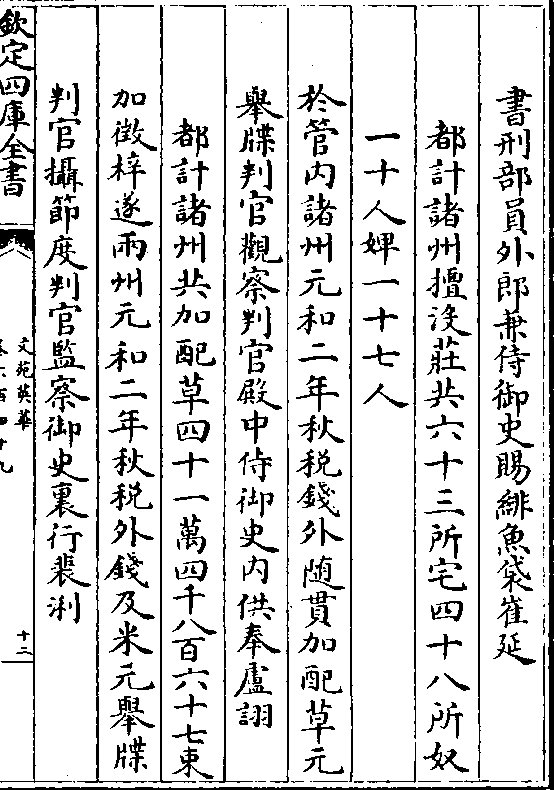 書刑部員外郎兼侍御史賜緋魚袋崔延
都計諸州擅沒莊共六十三所宅四十八所奴
一十人婢一十七人
於管内諸州元和二年秋税錢外随貫加配草元
舉牒判官觀察判官殿中侍御史内供奉盧詡
都計諸州共加配草四十一萬四千八百六十七束
加徴梓遂兩州元和二年秋税外錢及米元舉牒
判官攝節度判官監察御史裏行裴浰
欽定四庫全書
文苑英華
卷六百四十九
十二